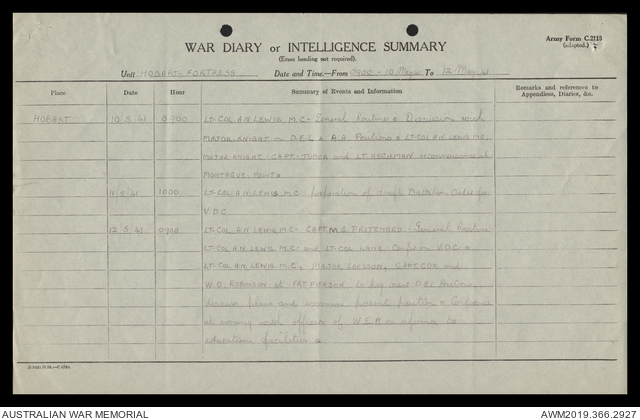 Army Form C.2118
(adapted.)
WAR DIARY or INTELLIGENCE SUMMARY
(Erase heading not required).
Unit HOBART FORTRESS Date and Time—From 0900 - 10 May To 12 May
Place Date Hour Summary of Events and Information Remarks and references to Appendices, Diaries, &c.
HOBART 10/5/41 0900 LT-COL A.N. LEWIS M.C. General Routine & Discussion with
MAJOR KNIGHT on D.E.L & A.A. Positions & LT-COL A.N. LEWIS MC,
MAJOR KNIGHT CAPT. and LT. reconnaissance at
MONTAGUE POINT
11.5.41 1000 LT-COL A.N. LEWIS M.C. preparation of draft Battalion Order for
V.D.C.
12.5.41 0900 LT-COL A.N. LEWIS M.C. CAPT. M.G. PRITCHARD. General Routine
LT-COL A.N. LEWIS M.C. and LT-COL LANE Conf on V.D.C.
LT-COL A.N. LEWIS M.C., MAJOR LARSSON, CAPT. COX and
W.O. ROBINSON at FORT PIERSON to peg new D.E.L Positions,
discuss plans and examine present position & Conference
at evening with officers of W.E.A. in reference to
education facilities
AUSTRALIAN WAR MEMORIAL
AWM2019.366.2927